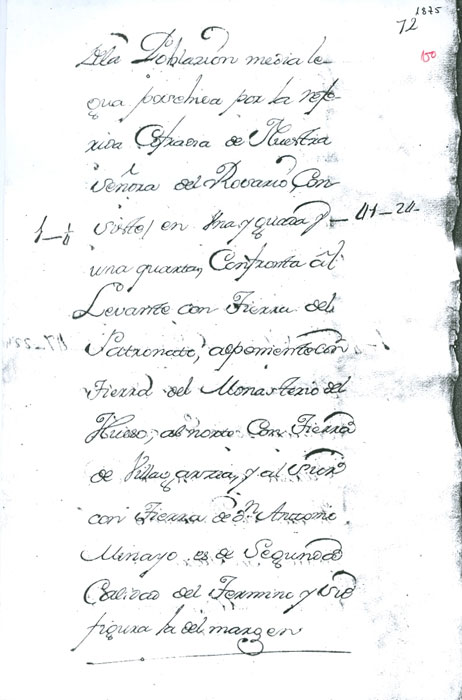 1875
72
Della Poblazion media le-
gua posehida por la refe-
rida Cofradia de Nuestra
Señora del Rosario, Con
siste, en Una yguada y
una quarta, Confronta al
Levante con Tierra del
Patronato, al poniente con
Tierra del Monasterio del
Hueso, al norte Con Tierra
de Villagarzia, y al Sur
con Tierra de Dn. Antonio
Minayo es de Segunda
Calidad del Termino y su
figura la del margen